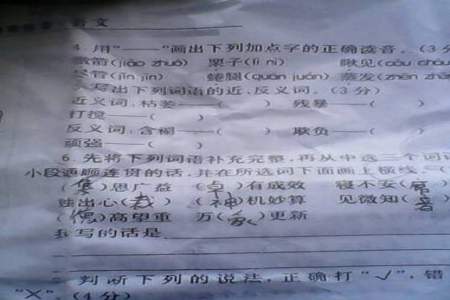 语文
4.用“——”画出下列加点字的正确读音。(3分
(jiāo zhuó) 栗子(lì ní) 瞅见(
尽管(jǐn jìn) 蜷腿(quán juǎn) 蒸发(zhēn zhēng
写出下列词语的近、反义词。(3分)
近义词:枯萎——( ) 残暴——(
打搅——( )
反义词: ——( ) 欺负——(
顽强——( )
6.先将下列词语补充完整,再从中选三个词语
小段通顺连贯的话,并在所选词下面画上横线。(
( )思广益 (卓)有成效 寝不安(席
独出心( ) (神)机妙算 见微知(著
( )高望重 万( )更新
我写的话是
判断下列的说法,正确打“√”,错
“×”。(4分)